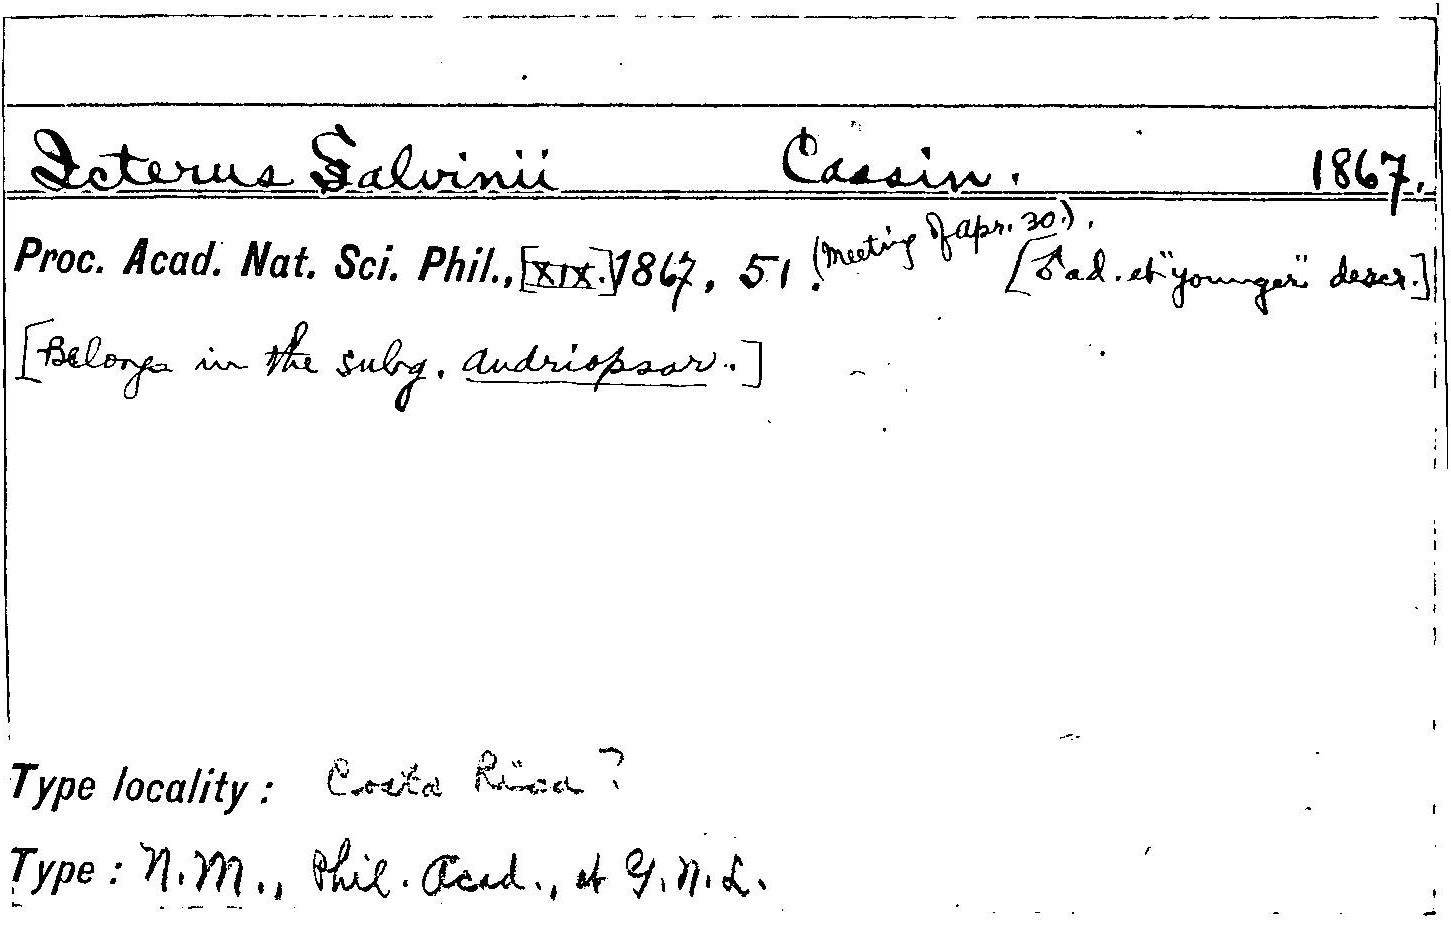 Icterus Salvinii Cassin. 1867.
Proc. Acad. Nat. Sci. Phil., [XIX.] 1867, 51. (Meeting of Apr. 30.). [♂ ad. et "younger" descr.]
[Belongs in the subg. Andriopsar.]
Type locality: Costa Rica?
Type: N.M., Phil. Acad., et G.N.L.